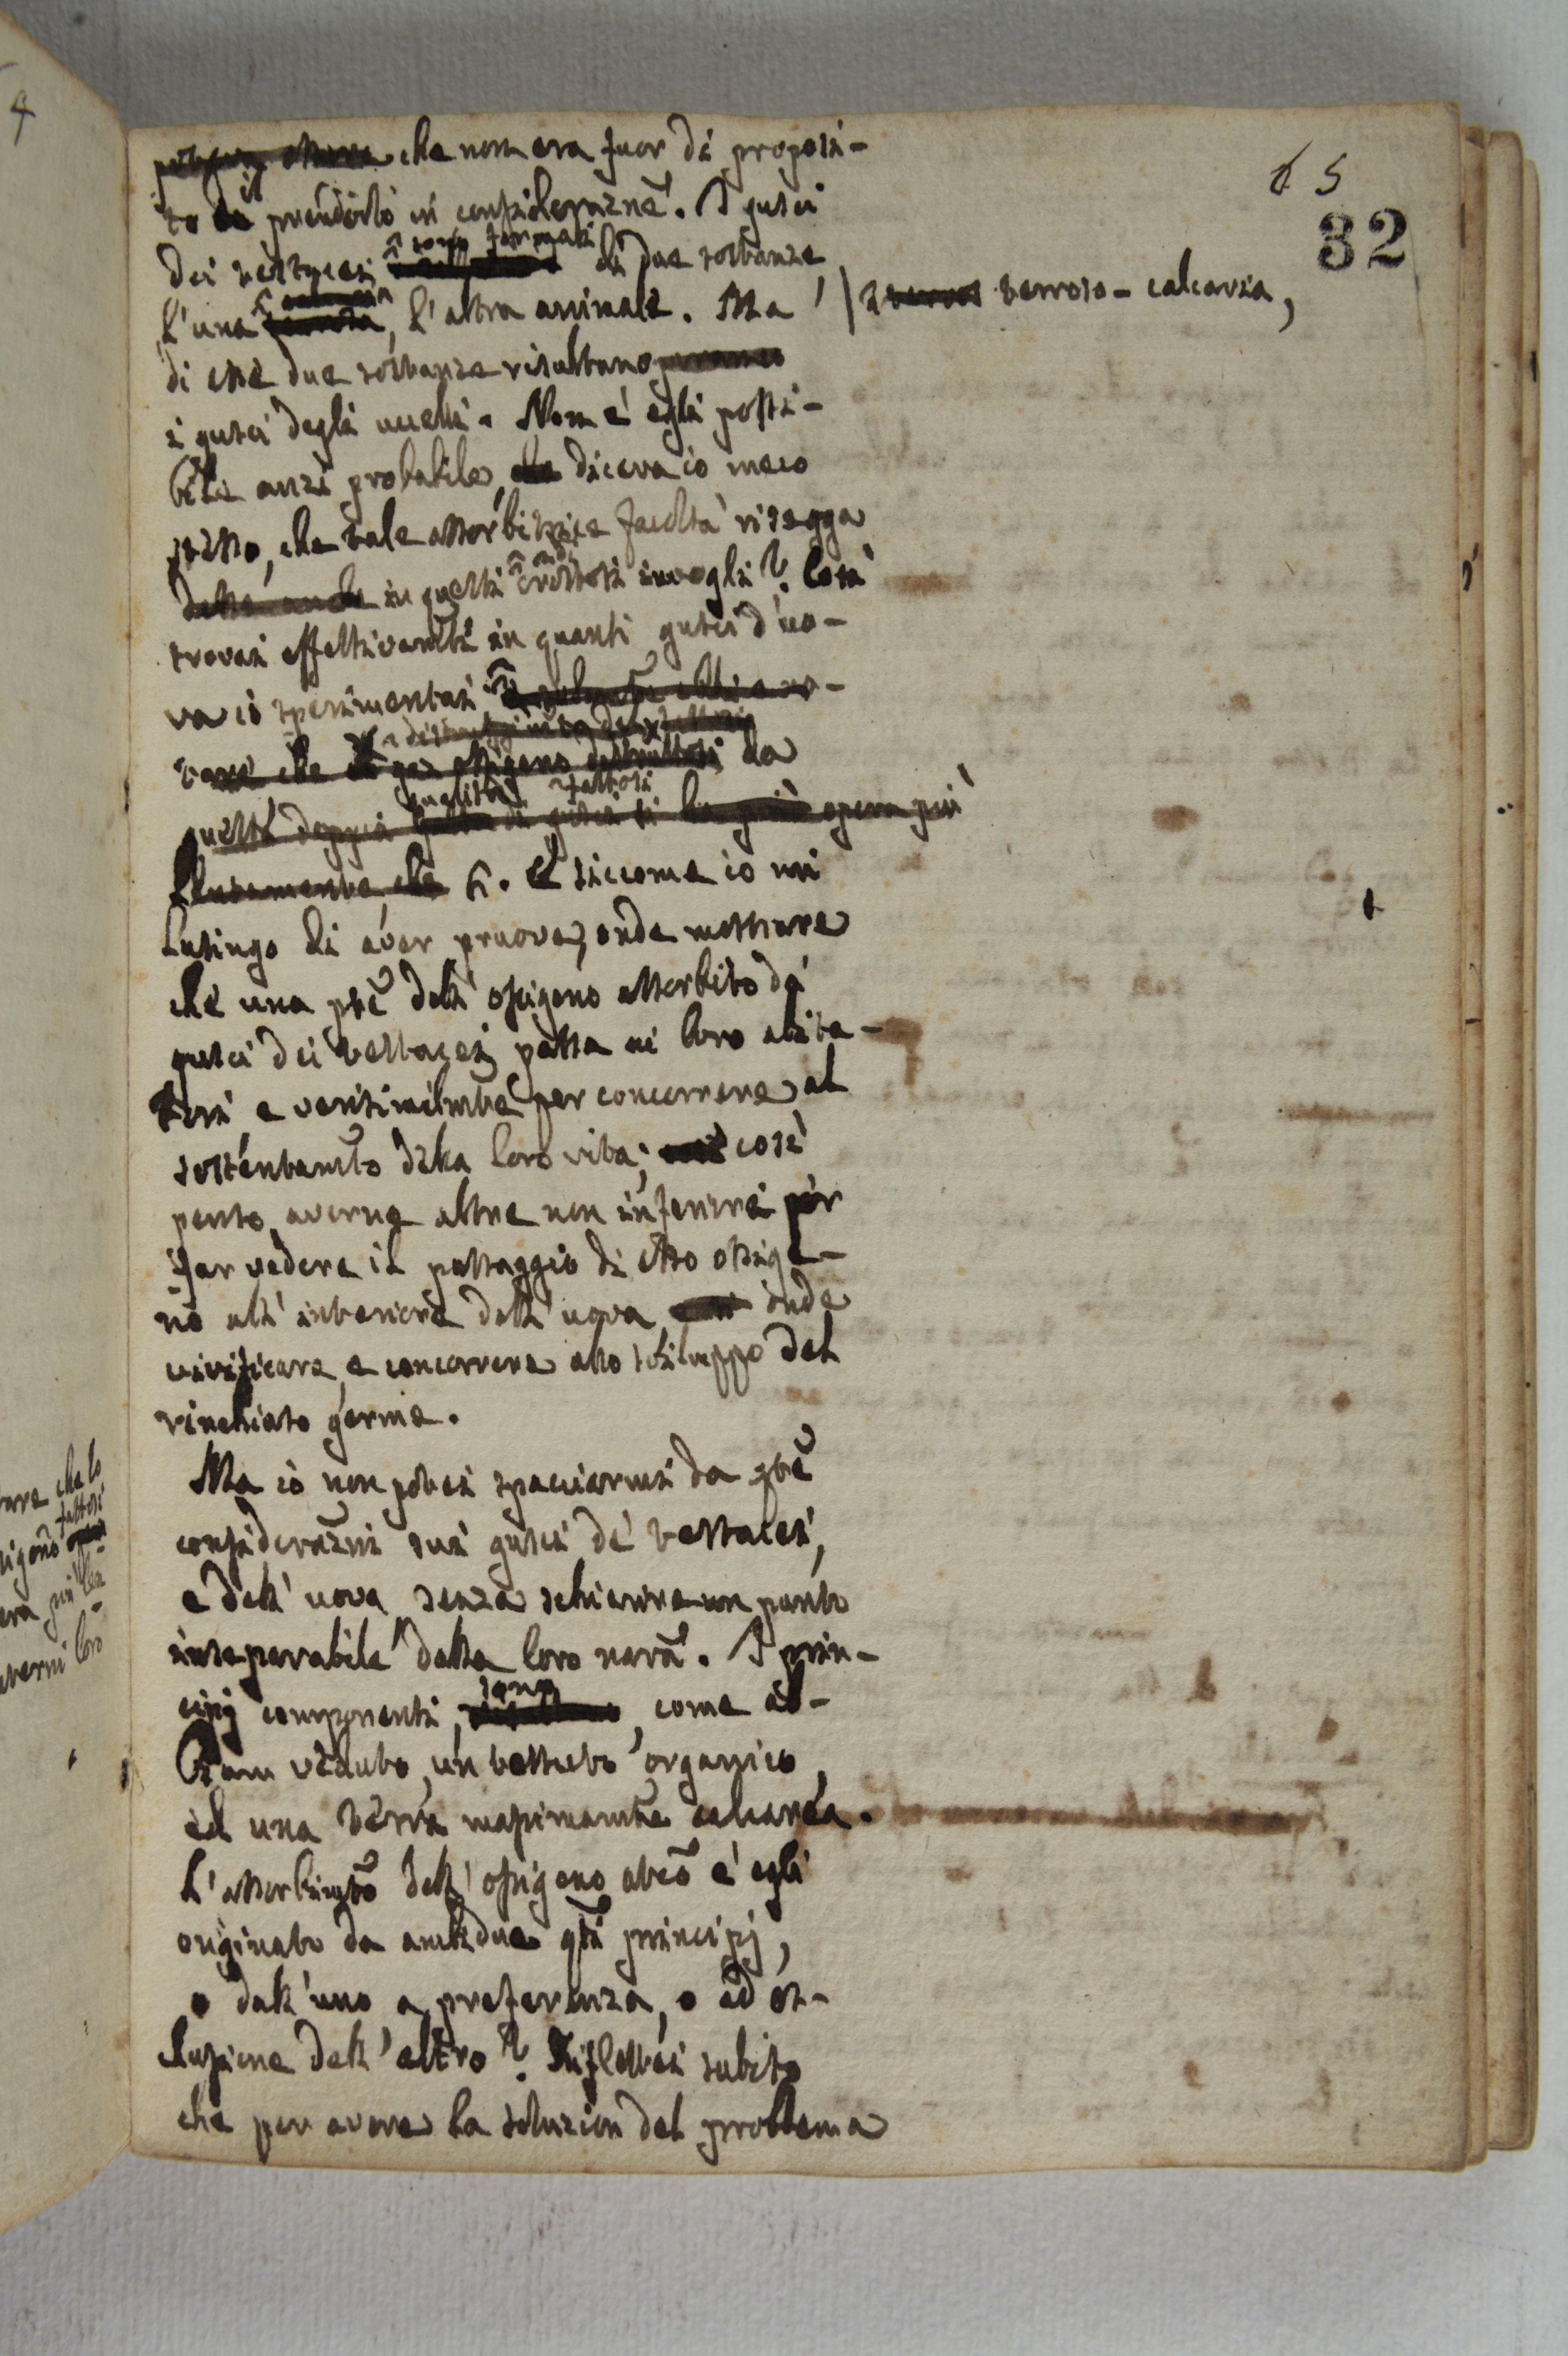 65
32
che non era fuor di proposi-
to il prenderlo in considerazne. I gusci
dei testacei sono formati di due sostanze,
l'una, l'altra animale. Ma
terroso-calcaria,
di esse due sostanze risultano
i gusci degli uccelli. Non è egli possi-
bile anzi probabile, che diceva io meco
stesso, che tale assorbitrice facoltà risegga
della anche in questi crostosi invogli? Così
trovai effettivamte in quanti gusci d'uo-
va io sperimentai
che il gas ossigeno da
queste doppia qualità di gusci si la più opera più
che. E siccome io mi
lusingo di aver pruove, onde mostrare
che una pte dell'ossigeno assorbito da'
gusci dei testacei passa ai loro abita-
tori, e verisimilmte per concorrere al
sostentamto della loro vita; così
penso averne altre non inferiori per
far vedere il passaggio di esso ossige-
no all'interiore dell'uova onde
vivificare, e concorrere allo sviluppo del
rinchiuso germe.
Ma io non potei spacciarmi da qte
considerazni sui gusci de' testacei,
e dell'uova senza schiarire un punto
inseparabile dalla loro natra. I prin-
cipj componenti, sono, come ab-
biam veduto, un tessuto organico,
ed una terra massimamte calcarea.
L'assorbimto dell'ossigeno atco è egli
originato da ambidue qti principj,
o dall'uno a preferenza, o ad es-
clusione dell'altro? Riflettei subito
che per avere la soluzion del problema
che lo
fattosi
loro